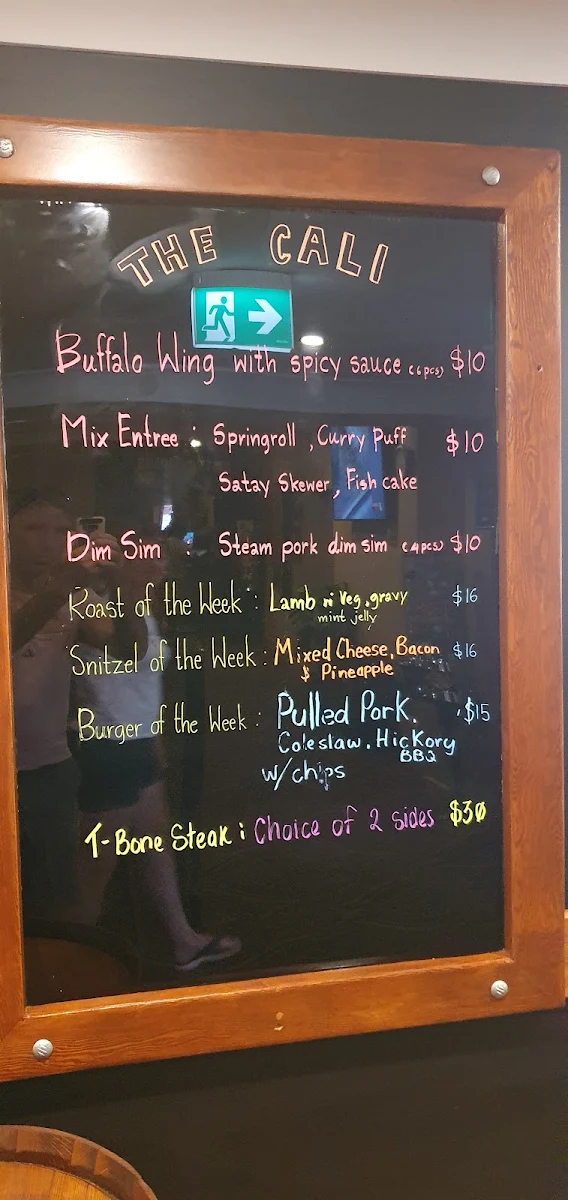 THE CALI
Buffalo Wing with spicy sauce (6pcs) $10
Mix Entree : Springroll, Curry Puff $10
Satay Skewer, Fish cake
Dim Sim : Steam pork dim sim (4pcs) $10
Roast of the Week : Lamb n' Veg, gravy $16
mint jelly
Snitzel of the Week : Mixed Cheese, Bacon $16
& Pineapple
Burger of the Week : Pulled Pork, $15
Coleslaw, Hickory
BBQ
w/ chips
T-Bone Steak : Choice of 2 sides $30